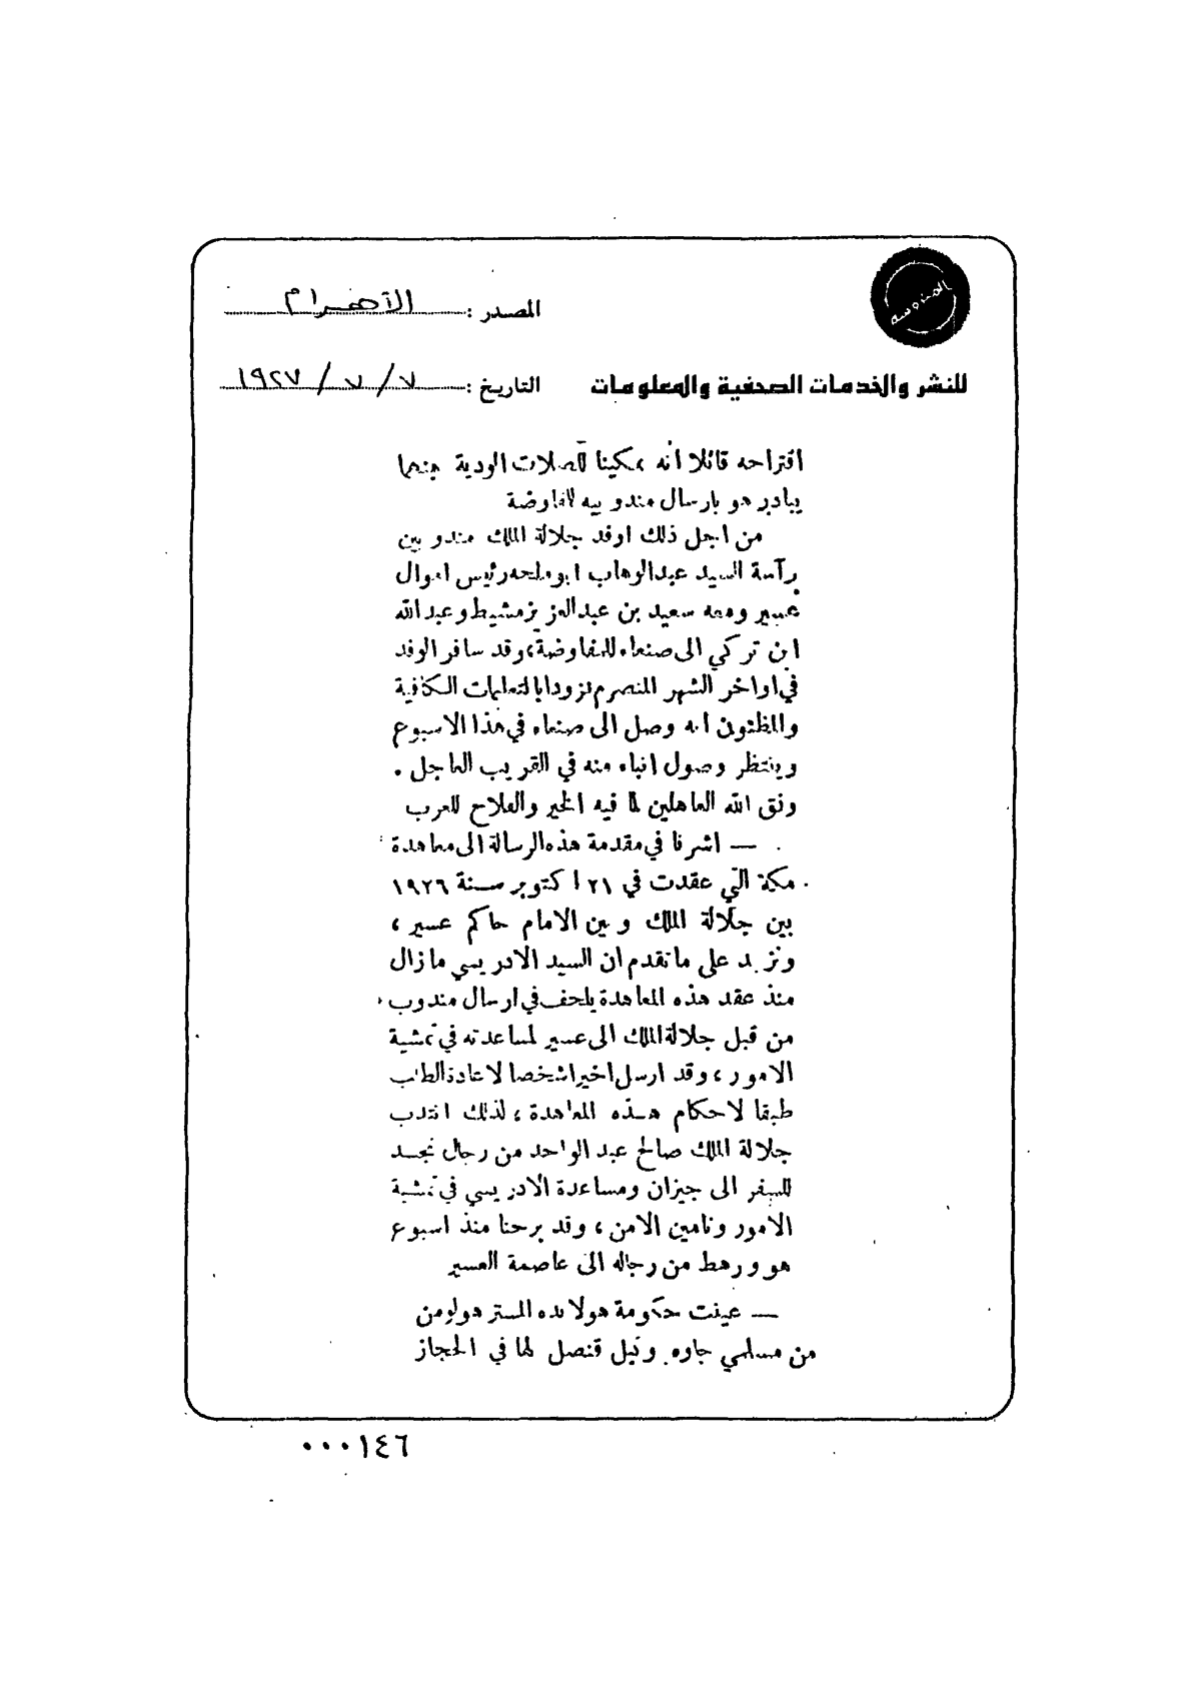 المحروسة
المصدر : الأهرام
للنشر والخدمات الصحفية والمعلومات
التاريخ : ٧ / ٧ / ١٩٢٧
اقتراحه قائلا انه تمكينا للصلات الودية بينهما
يبادر هو بارسال مندوبيه للمفاوضة
من اجل ذلك اوفد جلالة الملك مندوبين
برآسة السيد عبدالوهاب ابو ملحه رئيس اموال
عسير ومعه سعيد بن عبدالعزيز بن مشيط وعبدالله
ابن تركي الى صنعاء للمفاوضة، وقد سافر الوفد
في اواخر الشهر المنصرم مزودا بالتعليمات الكافية
والمظنون انه وصل الى صنعاء في هذا الاسبوع
وينتظر وصول انباء منه في القريب العاجل .
وفق الله العاهلين لما فيه الخير والفلاح للعرب
— اشرنا في مقدمة هذه الرسالة الى معاهدة
مكة التي عقدت في ٢١ اكتوبر سنة ١٩٢٦
بين جلالة الملك وبين الامام حاكم عسير ،
ونزيد على ماتقدم ان السيد الادريسي مازال
منذ عقد هذه المعاهدة يلحف في ارسال مندوب
من قبل جلالة الملك الى عسير لمساعدته في تمشية
الامور ، وقد ارسل اخيرا شخصا لاعادة الطلب
طبقا لاحكام هذه المعاهدة ، لذلك انتدب
جلالة الملك صالح عبد الواحد من رجال نجد
للسفر الى جيزان ومساعدة الادريسي في تمشية
الامور وتامين الامن ، وقد برحنا منذ اسبوع
هو ورهط من رجاله الى عاصمة العسير
— عينت حكومة هولانده المستر هولومن
من مسلمي جاوه وكيل قنصل لها في الحجاز
٠٠٠١٤٦